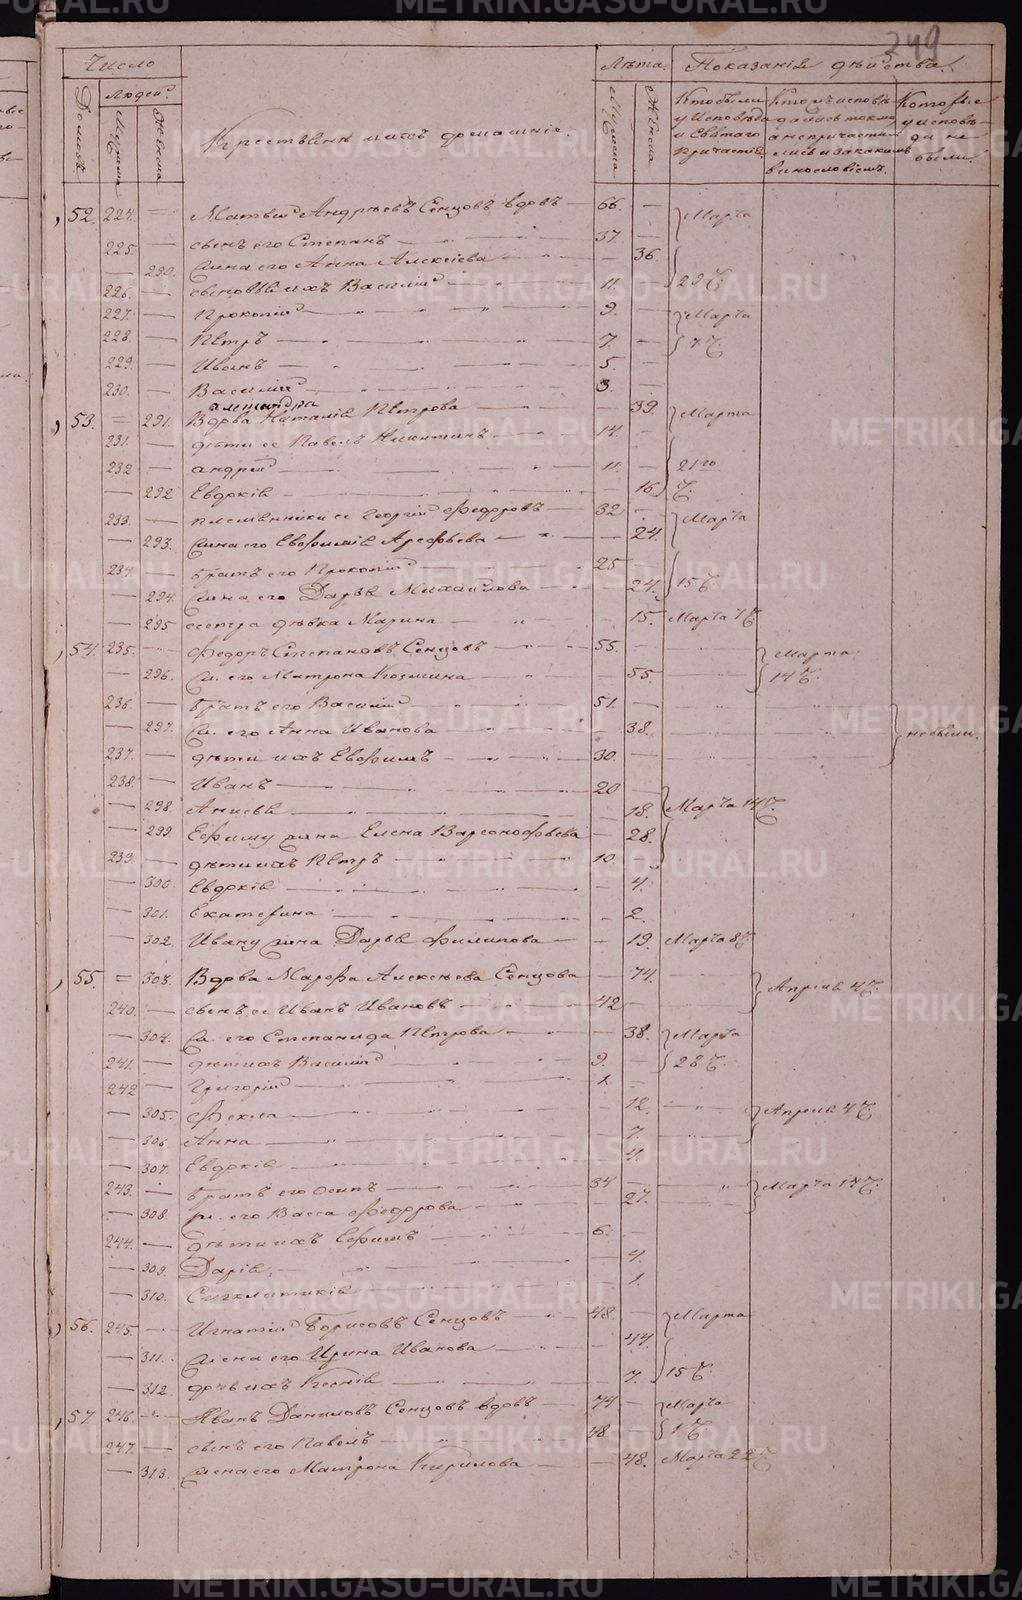 249
Число
Лѣта.
Показаніе дѣйства.
Домовъ
Людей
Мужеска
Женска
Крестьяне и ихъ домашніе.
Мужеска
Женска
Кто были у Исповѣди и Святаго причастія.
Кто исповѣдались токмо а не причастились и за какимъ винословіемъ.
Которые у исповѣди не были.
52. 224. — Матвей Андреевъ Сенцовъ вдовъ — 66. — Марта
225. — сынъ его Степанъ — 37. —
— 290. жена его Анна Алексѣева — 36.
226. — сыновья ихъ Василій — 11. — 29 Ч.
227. — Прокопій — 9. — Марта
228. — Петръ — 7. — 7 Ч.
229. — Иванъ — 5. —
230. — Василій — 3. —
53. — 291. Вдова Наталія Петрова — 39. Марта
231. — дѣти ее Павелъ Никитинъ — 14. —
232 — Андрей — 11. — 21го
— 292 Евдокія — 16. Ч.
233. — племянники ее Георгій Федоровъ — 32 — Марта
— 293. жена его Евфимія Арефьева — 24.
234. — братъ его Прокопій — 25 —
— 294. жена его Дарья Михайлова — 24. 15 Ч.
— 295 сестра дѣвка Марина — 15. Марта 7 Ч
54. 235. — Федоръ Степановъ Сенцовъ — 55. — Марта
— 296. ж. его Матрона Козмина — 55. — 14 Ч.
236. — братъ его Василій — 51. —
— 297. ж. его Анна Иванова — 38. — небыли.
237. — дѣти ихъ Евфимъ — 30. —
238. — Иванъ — 20 —
— 298. Анисья — 18. Марта 14 Ч.
— 299. Ефиму жена Елена Варсонофьева — 28.
239. — дѣти ихъ Петръ — 10. —
— 300. Евдокія — 4.
— 301. Екатерина — 2.
— 302. Ивану жена Дарья Филипова — 19. Марта 8 Ч
55. — 303. Вдова Марфа Алексѣева Сенцова — 74. — Апреля 4 Ч.
240. — сынъ ее Иванъ Ивановъ — 42 —
— 304. ж. его Степанида Петрова — 38. Марта
241. — дѣти ихъ Василій — 9. — 28 Ч.
242 — Григорій — 1. —
— 305. Фекла — 12. — Апреля 4 Ч.
— 306. Анна — 7.
— 307. Евдокія — 4.
243. — братъ его Осипъ — 34 — Марта 14 Ч.
— 308. ж. его Васса Федорова — 27. —
244. — дѣти ихъ Ефимъ — 6. —
— 309. Дарія — 4.
— 310. Сигклитикія — 1.
56. 245. — Игнатій Борисовъ Сенцовъ — 48. — Марта
— 311. жена его Ирина Иванова — 44.
— 312. дочь ихъ Ксенія — 7. 15 Ч.
57. 246. — Иванъ Даниловъ Сенцовъ вдовъ — 74 — Марта
247. — сынъ его Павелъ — 48. — 1 Ч.
— 313. жена его Матрона Кирилова — 48. Марта 22 Ч
METRIKI.GASO-URAL.RU